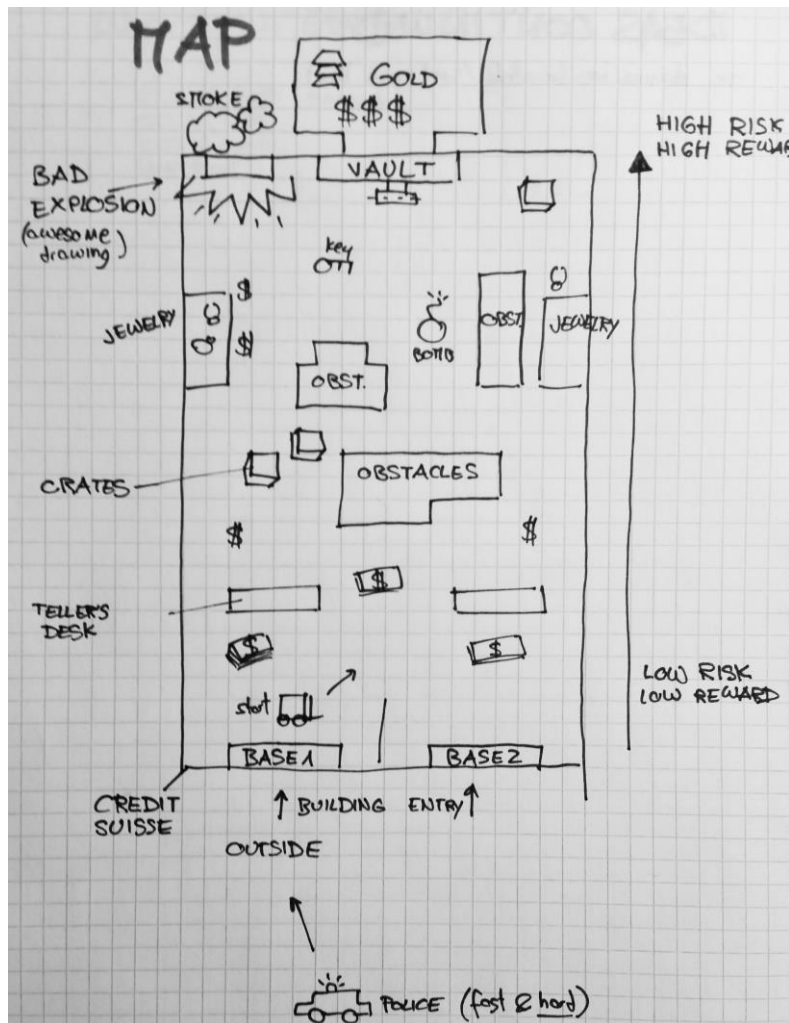 MAP
GOLD
$ $ $
SMOKE
HIGH RISK
HIGH REWAR
VAULT
BAD
EXPLOSION
(awesome
drawing)
key
$
JEWELRY
$
BOMB
OBST.
JEWELRY
OBST.
CRATES
OBSTACLES
$
$
$
TELLER'S
DESK
$
$
LOW RISK
LOW REWARD
start
BASE 1
BASE 2
CREDIT
SUISSE
BUILDING ENTRY
OUTSIDE
POLICE (fast & hard)